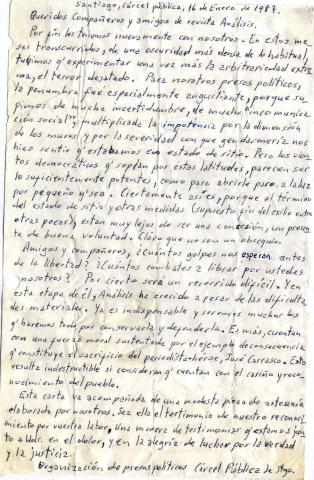 Santiago, Cárcel pública, 16 de Enero de 1987.
Queridos Compañeros y amigos de revista Análisis.
Por fin los tenemos nuevamente con nosotros. En estos me
ses transcurridos, de una oscuridad más densa de lo habitual,
tuvimos q' experimentar una vez más la arbitrariedad extre
ma, el terror desatado. Para nosotros presos políticos,
la penumbra fue especialmente angustiante, porque su
pimos de mucha incertidumbre, de mucha "incomunica
ción social", multiplicada la impotencia por la dimensión
de los muros y por la severidad con que gendarmería nos
hizo sentir q' estábamos con estado de sitio. Pero los vien
tos democráticos q' soplan por estas latitudes, parecen ser
lo suficientemente potentes, como para abrirle paso a la luz
por pequeño q' sea. Ciertamente así es, porque el término
del estado de sitio y otras medidas (supuesto fin del exilio entre
otras pocas), están muy lejos de ser una concesión, un presen
te de buena voluntad. Claro que no son un obsequio.
Amigos y compañeros, ¿cuántos golpes nos esperan antes
de la libertad? ¿Cuántos combates a librar por ustedes
nosotros? Por cierto será un recorrido difícil. Y en
esta etapa de él, Análisis ha crecido a pesar de las dificulta
des materiales. Ya es indispensable y seremos muchos los
q' haremos todo por conservarla y defenderla. Es más, cuentan
con una fuerza moral sustentada por el ejemplo de consecuencia
q' constituye el sacrificio del periodista-héroe, José Carrasco. Esto
resulta indestructible si consideran q' cuentan con el cariño y reco
nocimiento del pueblo.
Esta carta va acompañada de una modesta pieza de artesanía
elaborada por nosotros. Sea ella el testimonio de nuestro reconoci
miento por vuestra labor, una manera de testimoniar q' estamos jun
to a Uds. en el dolor, y en la alegría de luchar por la verdad
y la justicia.
Organización de presos políticos Cárcel Pública de Stgo.